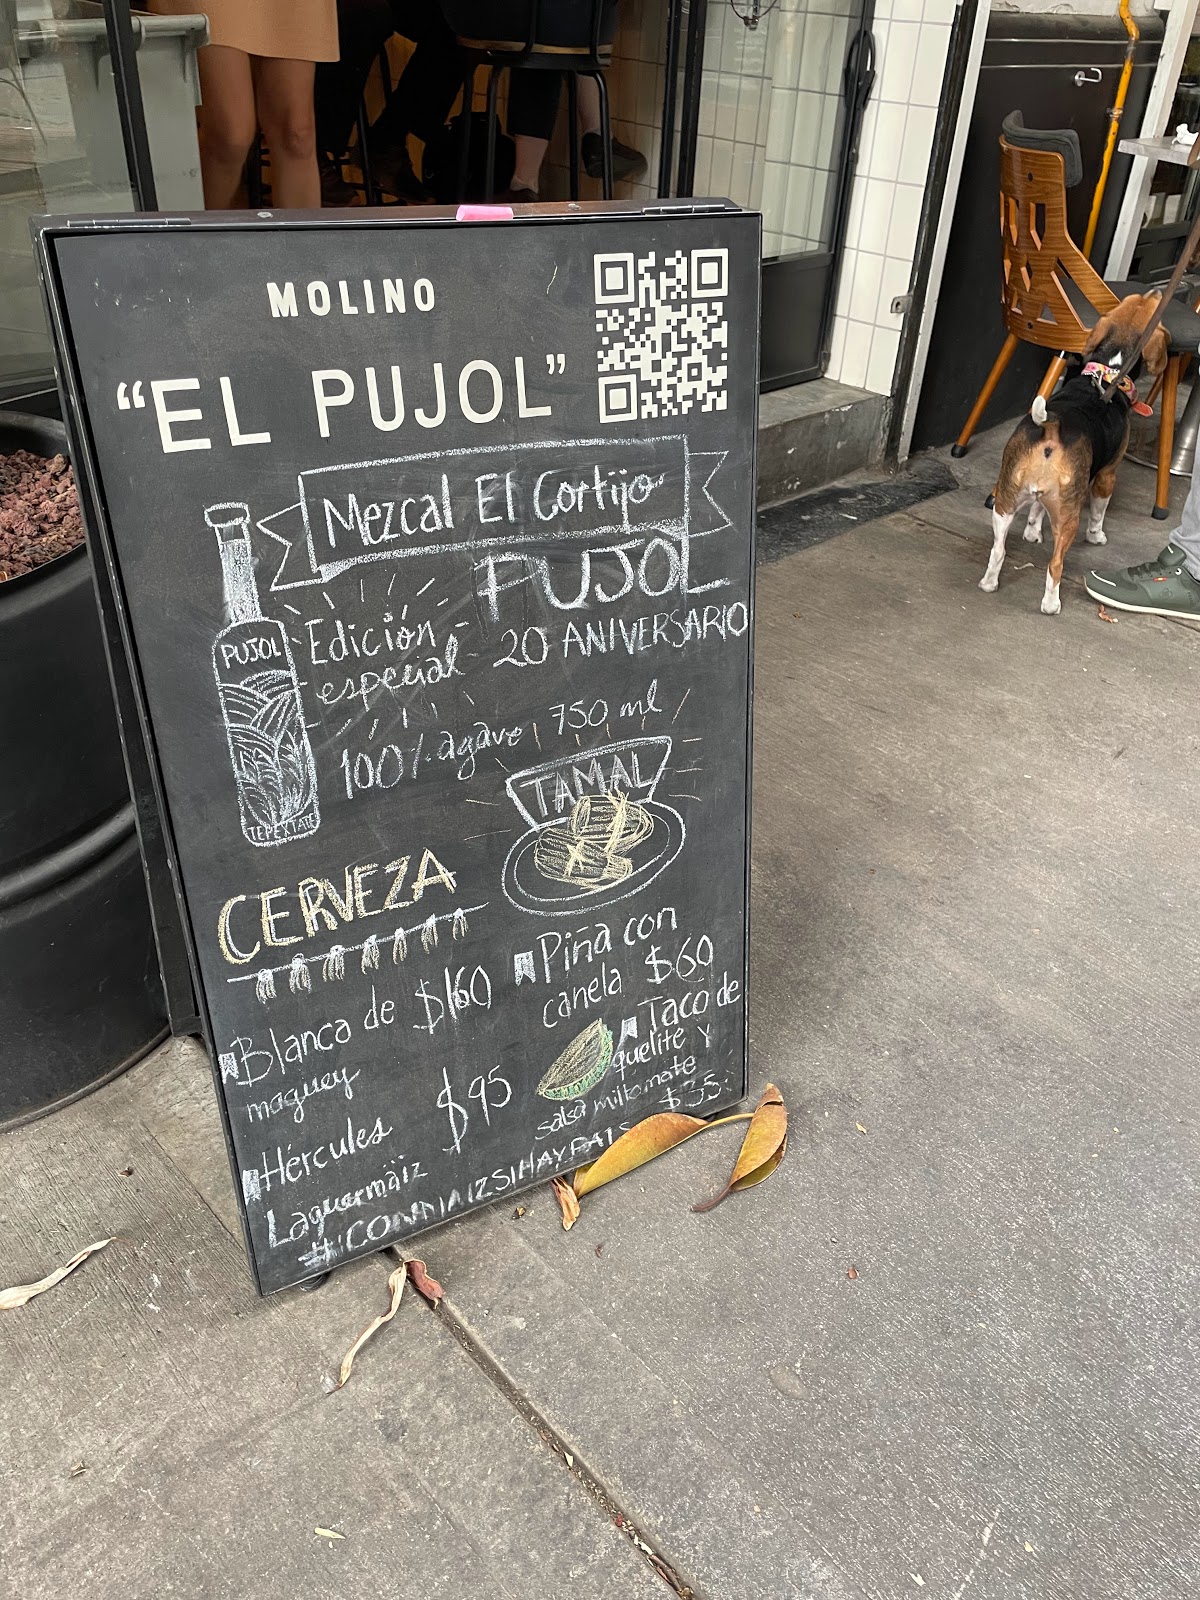 MOLINO
“EL PUJOL”
Mezcal El Cortijo
PUJOL
Edición
especial
20 ANIVERSARIO
100% agave 750 ml
PUJOL
TEPEXTATE
TAMAL
Piña con
canela $60
Taco de
quelite y
salsa miltomate
$35
CERVEZA
Blanca de $160
maguey
Hércules $95
Laguermaiz
#CONMAIZSIHAYPAIS